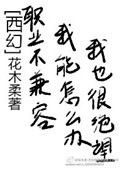 我也很绝望
我能怎么办
职业不兼容
[西幻]
花木柔著